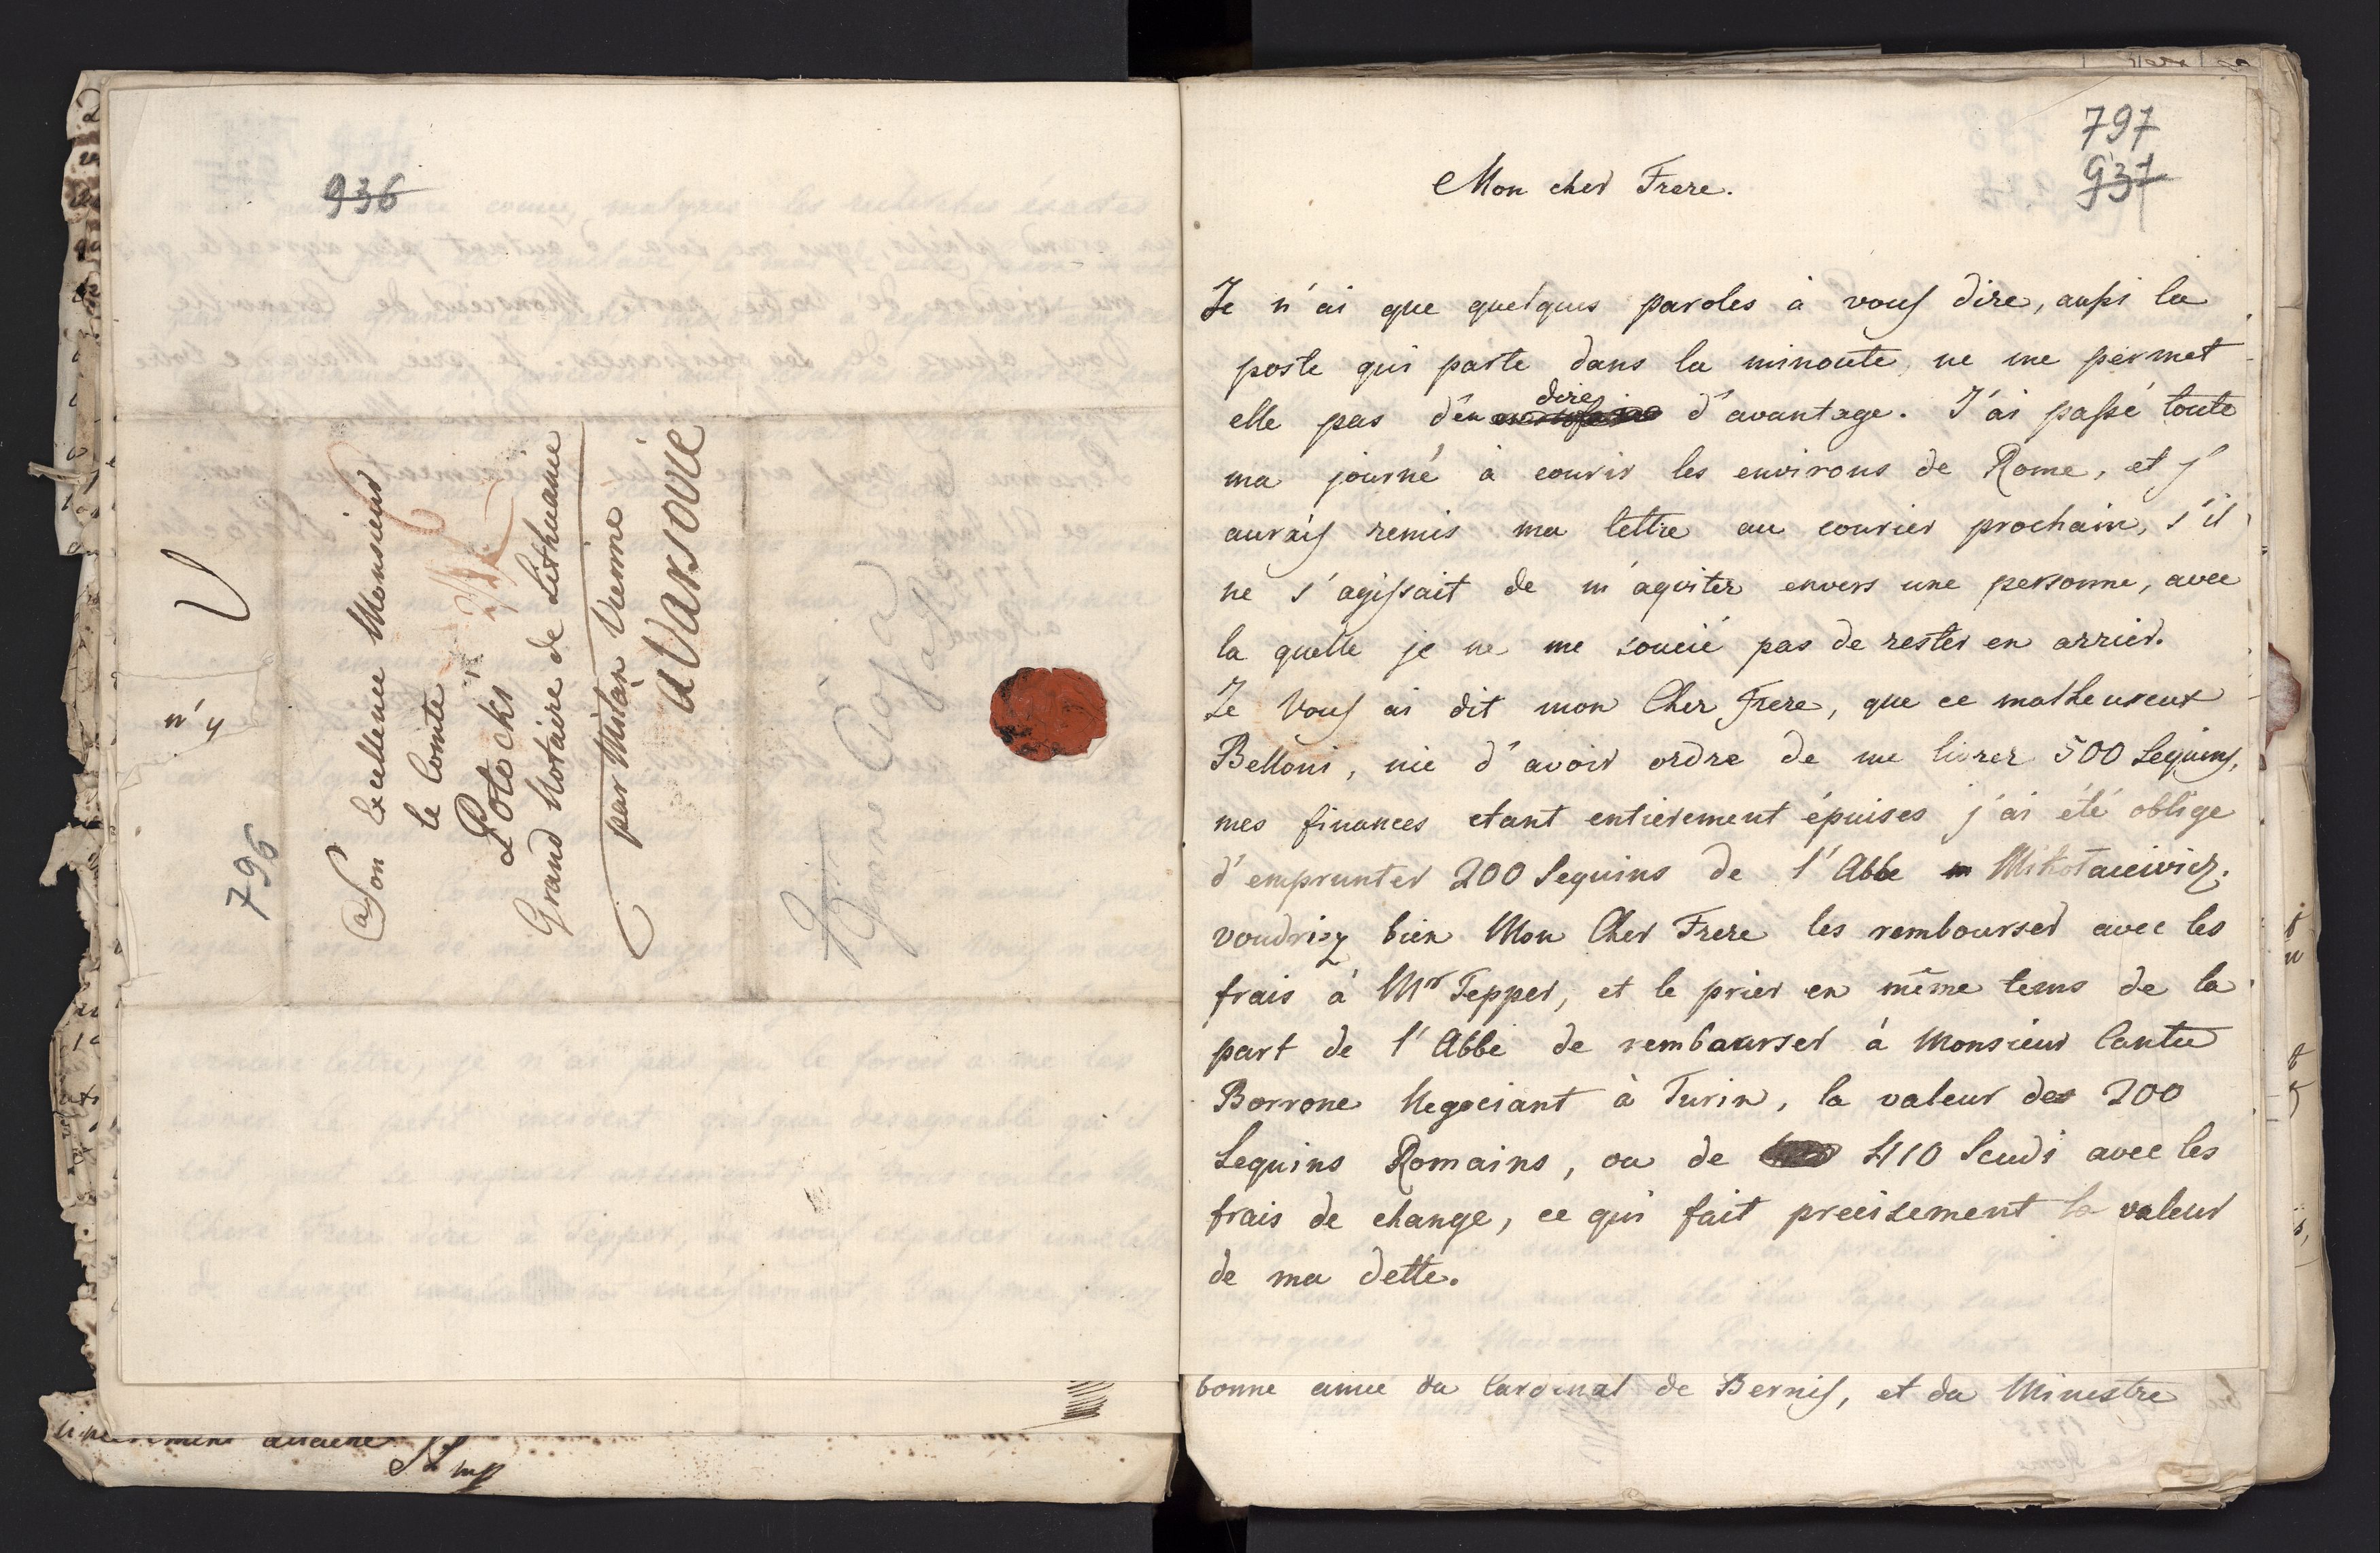 936
a Son Excellence Monsieur
le Comte
Potocki
Grand Notaire de Lithuanie
par Milan Vienne
a Varsovie
n' 4
796
797
937
Mon cher Frere.
Je n'ai que quelques paroles à vous dire, aussi la
poste qui parte dans la minoute, ne me permet
elle pas d'en dire d'avantage. J'ai passé toute
ma journé à courir les environs de Rome, et j'
aurais remis ma lettre au courier prochain, s'il
ne s'agissait de m'aquiter envers une personne, avec
la quelle je ne me soucié pas de rester en arrier.
Je Vous ai dit mon Cher Frere, que ce malheureux
Belloni, nie d'avoir ordre de me livrer 500 Sequins,
mes finances etant entierement épuises j'ai été oblige
d'emprunter 200 Sequins de l'Abbe Mikołaiewicz.
voudriez bien Mon Cher Frere les rembourser avec les
frais à Mr Tepper, et le prier en même tems de la
part de l'Abbé de rembourser à Monsieur Cantu
Borrone Negociant à Turin, la valeur des 200
Sequins Romains, ou de 410 Scudi avec les
frais de change, ce qui fait precisement la valeur
de ma dette.
bonne amie du Cardinal de Bernis, et du Ministre